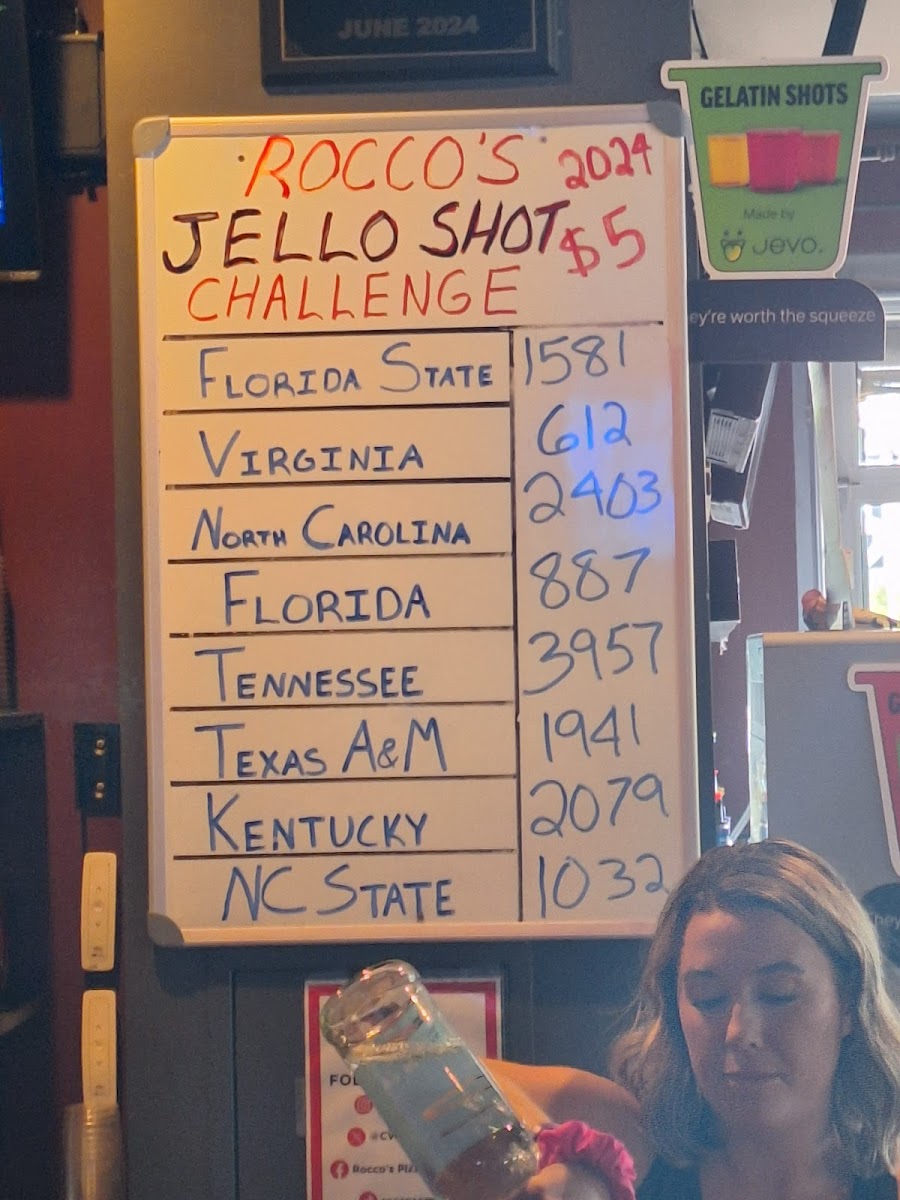 JUNE 2024
ROCCO'S 2024
JELLO SHOT $5
CHALLENGE
FLORIDA STATE 1581
VIRGINIA 612
NORTH CAROLINA 2403
FLORIDA 887
TENNESSEE 3957
TEXAS A&M 1941
KENTUCKY 2079
NC STATE 1032
GELATIN SHOTS
Made by
Jevo.
ey're worth the squeeze
FOL
Rocco's Piz